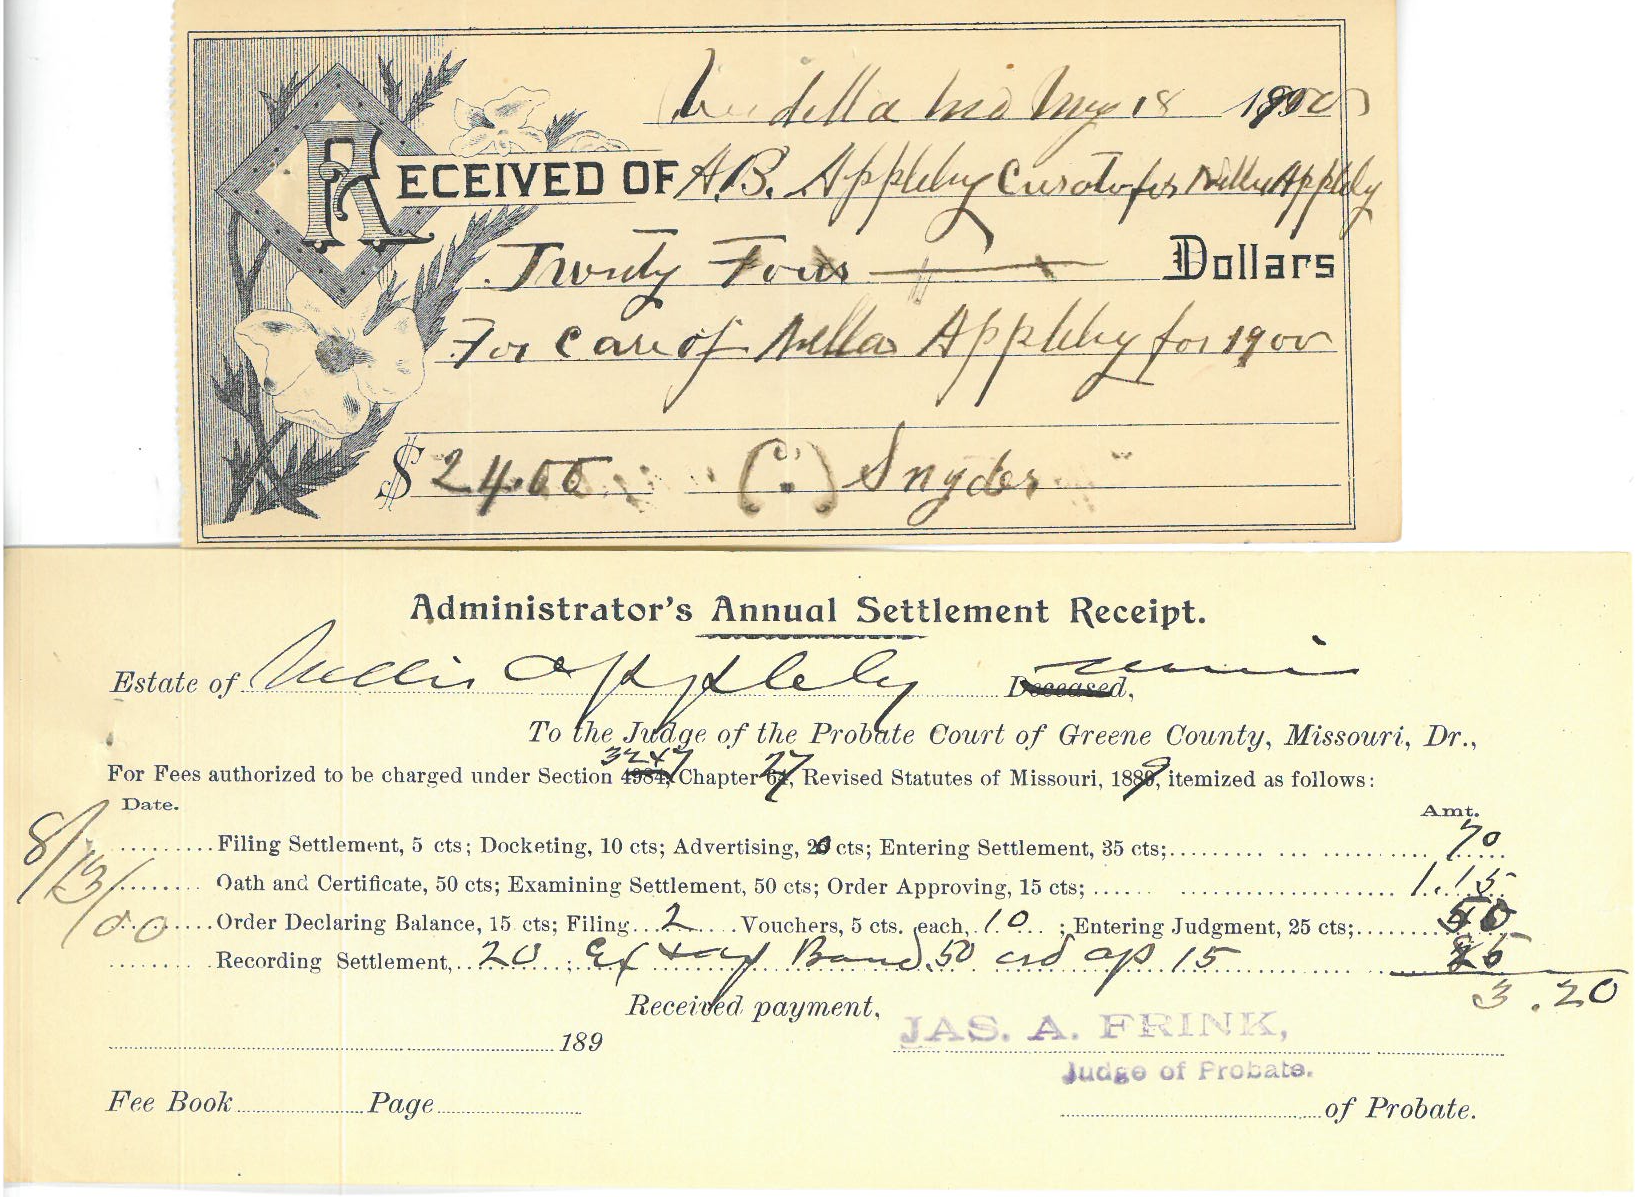 Mo May 18 1900
RECEIVED OF A.B. Appleby Curator for Nelly Appleby
Twenty Four Dollars
For Care of Nella Appleby for 1900
$ 24.00 Snyder
Administrator's Annual Settlement Receipt.
Estate of Nellie Appleby Deceased, minor
To the Judge of the Probate Court of Greene County, Missouri, Dr.,
3247 27
For Fees authorized to be charged under Section 4984, Chapter 64, Revised Statutes of Missouri, 1889, itemized as follows:
Date. Amt.
8/13/00
Filing Settlement, 5 cts; Docketing, 10 cts; Advertising, 20 cts; Entering Settlement, 35 cts; 70
Oath and Certificate, 50 cts; Examining Settlement, 50 cts; Order Approving, 15 cts; 1.15
Order Declaring Balance, 15 cts; Filing 2 Vouchers, 5 cts. each, 10 ; Entering Judgment, 25 cts; 50
Recording Settlement, 20 ; Bond 50 ord ap 15 85
3.20
Received payment,
JAS. A. FRINK,
189
Judge of Probate.
Fee Book Page of Probate.